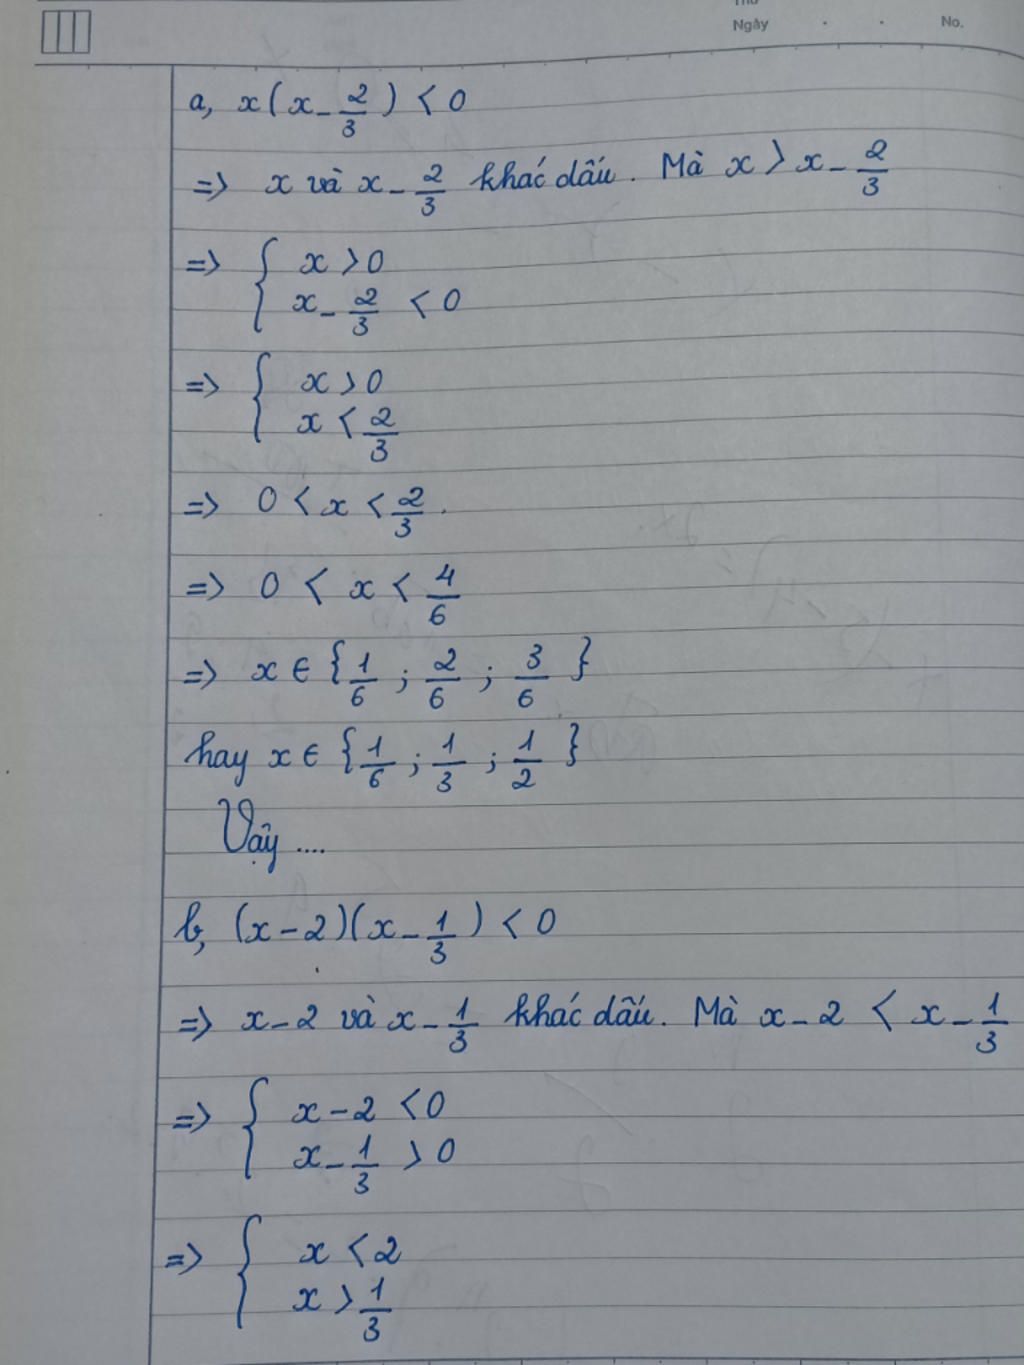 Thứ
Ngày . . No.
a, x(x - 2/3) < 0
=> x và x - 2/3 khác dấu. Mà x > x - 2/3
=> { x > 0
x - 2/3 < 0
=> { x > 0
x < 2/3
=> 0 < x < 2/3.
=> 0 < x < 4/6
=> x ∈ {1/6 ; 2/6 ; 3/6}
hay x ∈ {1/6 ; 1/3 ; 1/2}
Vậy ....
b, (x - 2)(x - 1/3) < 0
=> x - 2 và x - 1/3 khác dấu. Mà x - 2 < x - 1/3
=> { x - 2 < 0
x - 1/3 > 0
=> { x < 2
x > 1/3